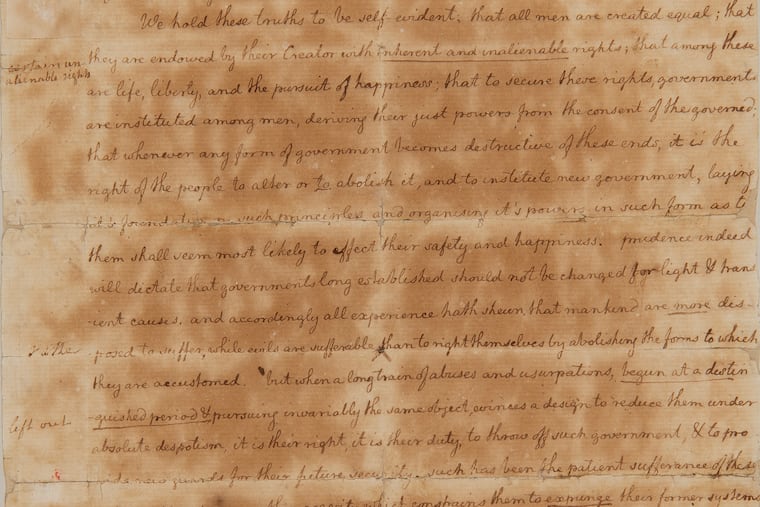 We hold these truths to be self-evident; that all men are created equal; that
certain un-
they are endowed by their Creator with inherent and inalienable rights; that among these
alienable rights
are life, liberty, and the pursuit of happiness; that to secure these rights, governments
are instituted among men, deriving their just powers from the consent of the governed;
that whenever any form of government becomes destructive of these ends, it is the
right of the people to alter or to abolish it, and to institute new government, laying
it's foundation on such principles and organising it's powers in such form as to
them shall seem most likely to effect their safety and happiness. prudence indeed
will dictate that governments long established should not be changed for light & trans
-ient causes. and accordingly all experience hath shewn that mankind are more dis-
posed to suffer, while evils are sufferable than to right themselves by abolishing the forms to which
they are accustomed. but when a long train of abuses and usurpations, begun at a distin
left out
-guished period & pursuing invariably the same object, evinces a design to reduce them under
absolute despotism, it is their right, it is their duty, to throw off such government, & to pro
-vide new guards for their future security. such has been the patient sufferance of these
which constrains them to expunge their former systems